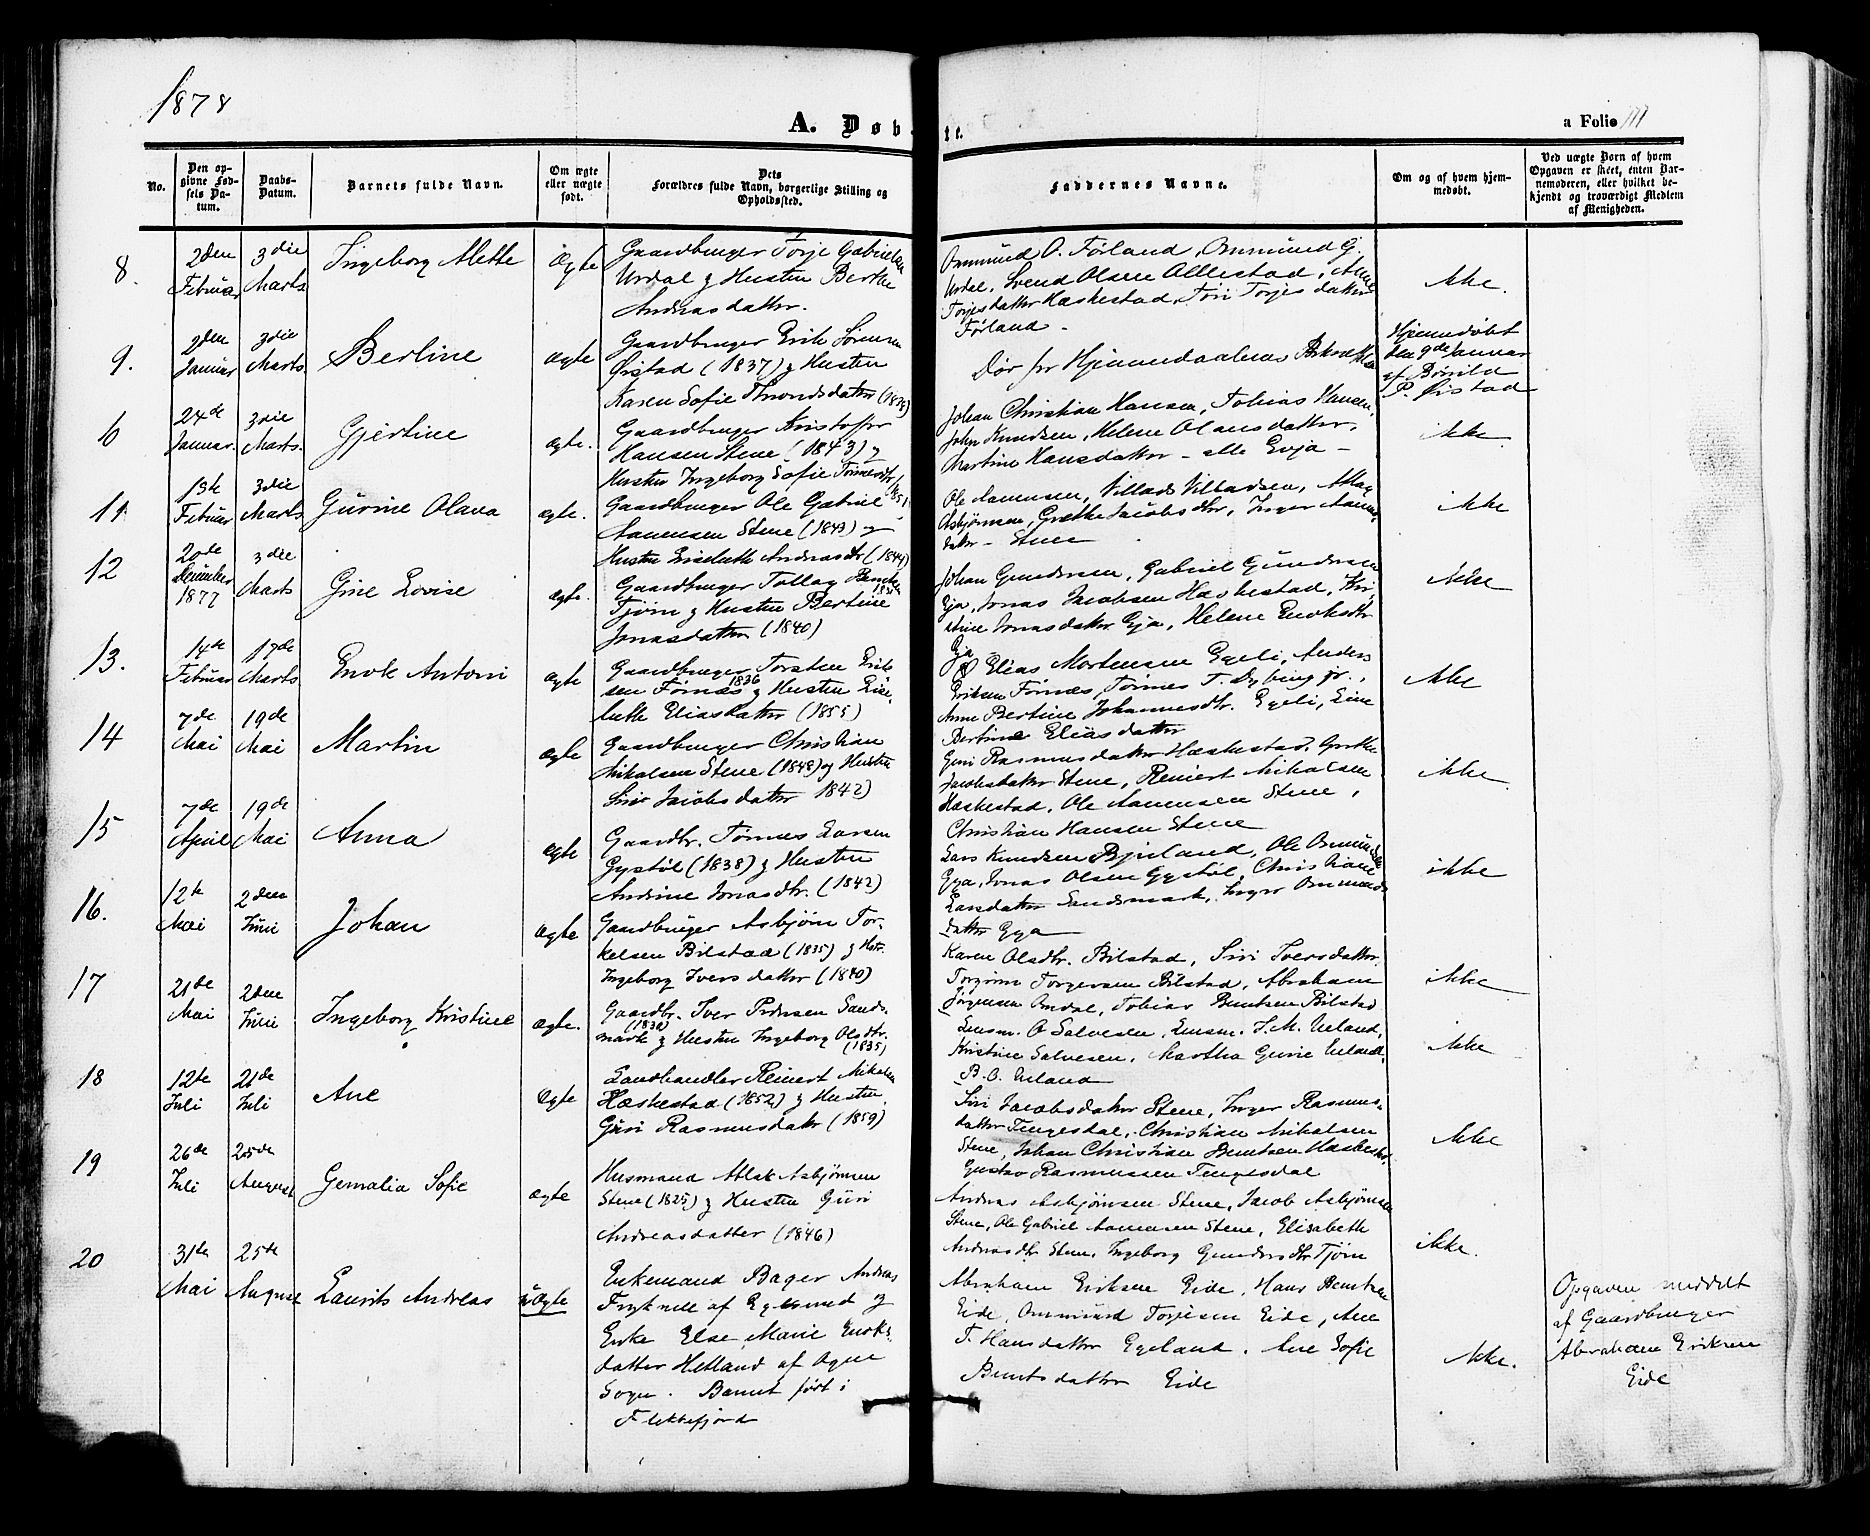 1878
A. Døbte.
a Folio 111
No.
Den op-
givne Fød-
sels Da-
tum.
Daabs-
Datum.
Barnets fulde Navn.
Om ægte
eller uægte
født.
Dets
Forældres fulde Navn, borgerlige Stilling og
Opholdssted.
Faddernes Navne.
Om og af hvem hjem-
medøbt.
Ved uægte Børn af hvem
Opgaven er skeet, enten Bar-
nemoderen, eller hvilket be-
kjendt og troværdigt Medlem
af Menigheden.
8.
2den
Februar
3die
Marts
Ingeborg Mette
Ægte
Gaardbruger Torje Gabrielsen
Urdal og Hustru Berthe
Andreasdatter.
Ommund O. Førland, Ommund G.
Urdal, Svend Olsen Allestad, Ane
Torjesdatter Hæskestad, Tori Torjesdatter
Førland -
Ikke.
9.
2den
Januar
3die
Marts
Berline
Ægte
Gaardbruger Erik Sørensen
Øistad (1837) og Hustru
Karen Sofie Throndsdatter
Dør for Hjemmedaabens
Hjemmedøbt
den 9de Januar
af
P. Øistad
6
24de
Januar.
3die
Marts.
Gjertine
Ægte.
Gaardbruger Kristoffer
Hansen Stene (1843) og
Hustru Ingeborg Sofie Tønnesdtr
1851
Johan Christian Hansen, Tobias Hansen,
John Knudsen, Helene Olausdatter,
Martine Hansdatter - alle Evja -
ikke
11
13de
Februar
3die
Marts
Gurine Olava
Ægte.
Gaardbruger Ole Gabriel
Aanensen Stene (1843) og
Hustru Liselath Andreasdtr (1844)
Ole Aanensen, Villads Villadsen,
Asbjørnsen, Grethe Jacobsdtr, Inger Aanens-
datter - Stene
ikke
12
20de
December
1877
3die
Marts
Gine Lovise
Ægte.
Gaardbruger Tollag
Tjørn og Hustru Bertine
Jonasdatter (1840)
Johan Gundersen, Gabriel Gundersen
Eja, Jonas Jacobsen Hæskestad, Kri-
stine Jonasdatter Eja, Helene Enoksdtr
Eja
ikke
13.
14de
Februar
17de
Marts
Enok Antoni
Ægte
Gaardbruger Torsten Erik-
sen Fönæs 1836 og Hustru Lise-
beth Eliasdatter (1855)
Elias Mortensen Egeli, Anders
Eriksen Fönæs, Tönnes T. Dybing jr.,
Anne Bertine Johannesdtr. Egeli, Line
Bertine Eliasdatter
Ikke
14
7de
Mai
19de
Mai
Martin
Ægte
Gaardbruger Christian
Mikalsen Stene (1848) og Hustru
Siri Jacobsdatter 1842)
Guri Rasmusdatter Hæskestad, Grethe
Jacobsdatter Stene, Reinert Mikalsen
Hæskestad, Ole Aanensen Stene,
Christian Hansen Stene
ikke
15
7de
April
19de
Mai
Anna
Ægte
Gaardbr. Tønnes Larsen
Gystøl (1838) og Hustru
Andrine Jonasdtr. (1842)
Lars Knudsen Bjuland, Ole Ommundsen
Gya, Jonas Olsen Gystøl, Christiane
Larsdatter Sandsmark, Inger Ommunds-
datter Gya
ikke
16.
12te
Mai
2den
Juni
Johan
Ægte
Gaardbruger Asbjørn Tor-
kelsen Bilstad (1835) og Hstr.
Ingeborg Iversdatter (1840)
Karen Olsdtr. Bilstad, Siri Iversdatter
Torgrim Torgersen Bilstad, Abraham
Jørgensen Omdal, Tobias Berntsen Bilstad
ikke
17
21de
Mai
2den
Julie
Ingeborg Kristine
Ægte.
Gaardbr. Iver Pedersen Sands-
mark (1830) og Hustru Ingeborg Olsdtr.
(1835)
Lensm. O Salvesen, Lensm. T.M. Ueland,
Kristine Salvesen, Martha Gurie Ueland,
B.O. Ueland
ikke
18
12te
Juli
21de
Juli
Ane
Ægte
Landhandler Reinert Mikalsen
Hæskestad (1852) og Hustru,
Guri Rasmusdatr (1859)
Siri Jacobsdatter Stene, Inger Rasmus-
datter Tengesdal, Christian Mikalsen
Stene, Johan Christian Berntsen Hæskestad,
Gustav Rasmussen Tengesdal
Ikke
19
26de
Juli
25de
August
Gemalia Sofie
Ægte
Husmand Atlak Asbjørnsen
Stene (1825) og Hustru Guri
Andreasdatter (1846)
Andreas Asbjørnsen Stene, Jacob Asbjørnsen
Stene, Ole Gabriel Aanensen Stene, Elisabeth
Andreasdtr Stene, Ingeborg Gundersdtr Tjørn
ikke.
20
31te
Mai
25te
August
Laurits Andreas
uÆgte
Enkemand Bager Andreas
af Egersund og
Enke Else Marie Enoks-
datter Hetland af Ogne
Sogn. Barnet født i
Flekkefjord
Abraham Eriksen Eide, Hans Berntsen
Eide, Ommund Torjesen Eide, Ane
T. Hansdatter Egeland, Ane Sofie
Berntsdatter Eide
Ikke.
Opgaven meddelt
af Gaardbruger
Abraham Eriksen
Eide